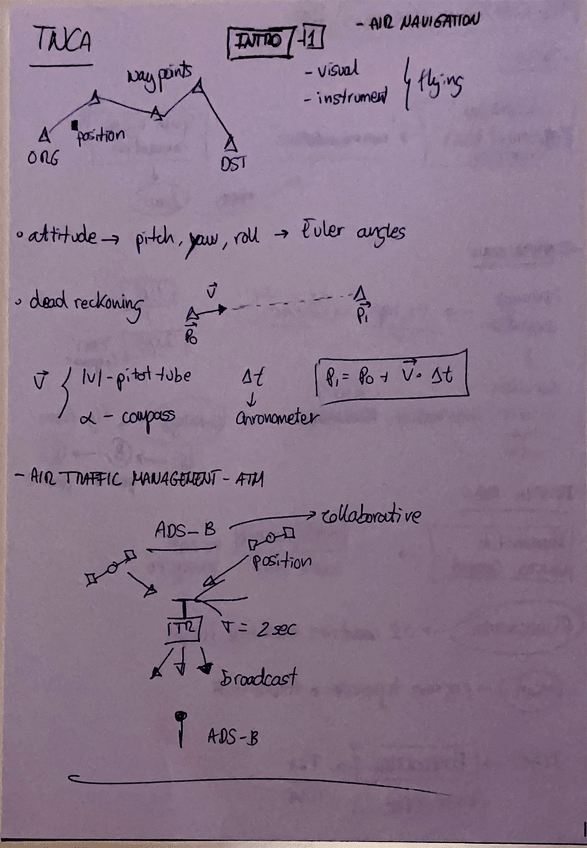 - AIR NAVIGATION
TNCA
INTRO - 1
way points
- visual
- instrument
flying
position
ORG
DST
• attitude → pitch, yaw, roll → Euler angles
• dead reckoning
V
P0
P1
V
|V| - pitot tube
α - compass
Δt
↓
Chronometer
P1 = P0 + V · Δt
- AIR TRAFFIC MANAGEMENT - ATM
ADS-B
collaborative
position
T = 2 sec
broadcast
ADS-B